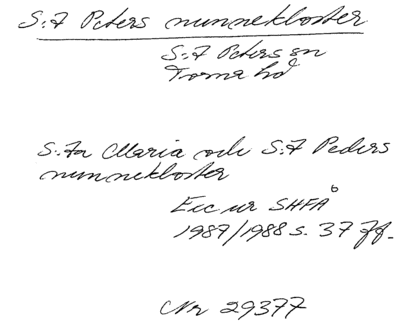 S:t Peters nunnekloster
S:t Peters sn
Torna hd
S:ta Maria och S:t Peders
nunnekloster
Exc ur SHFÅ
1987/1988 s. 37 ff.
Nr 29377